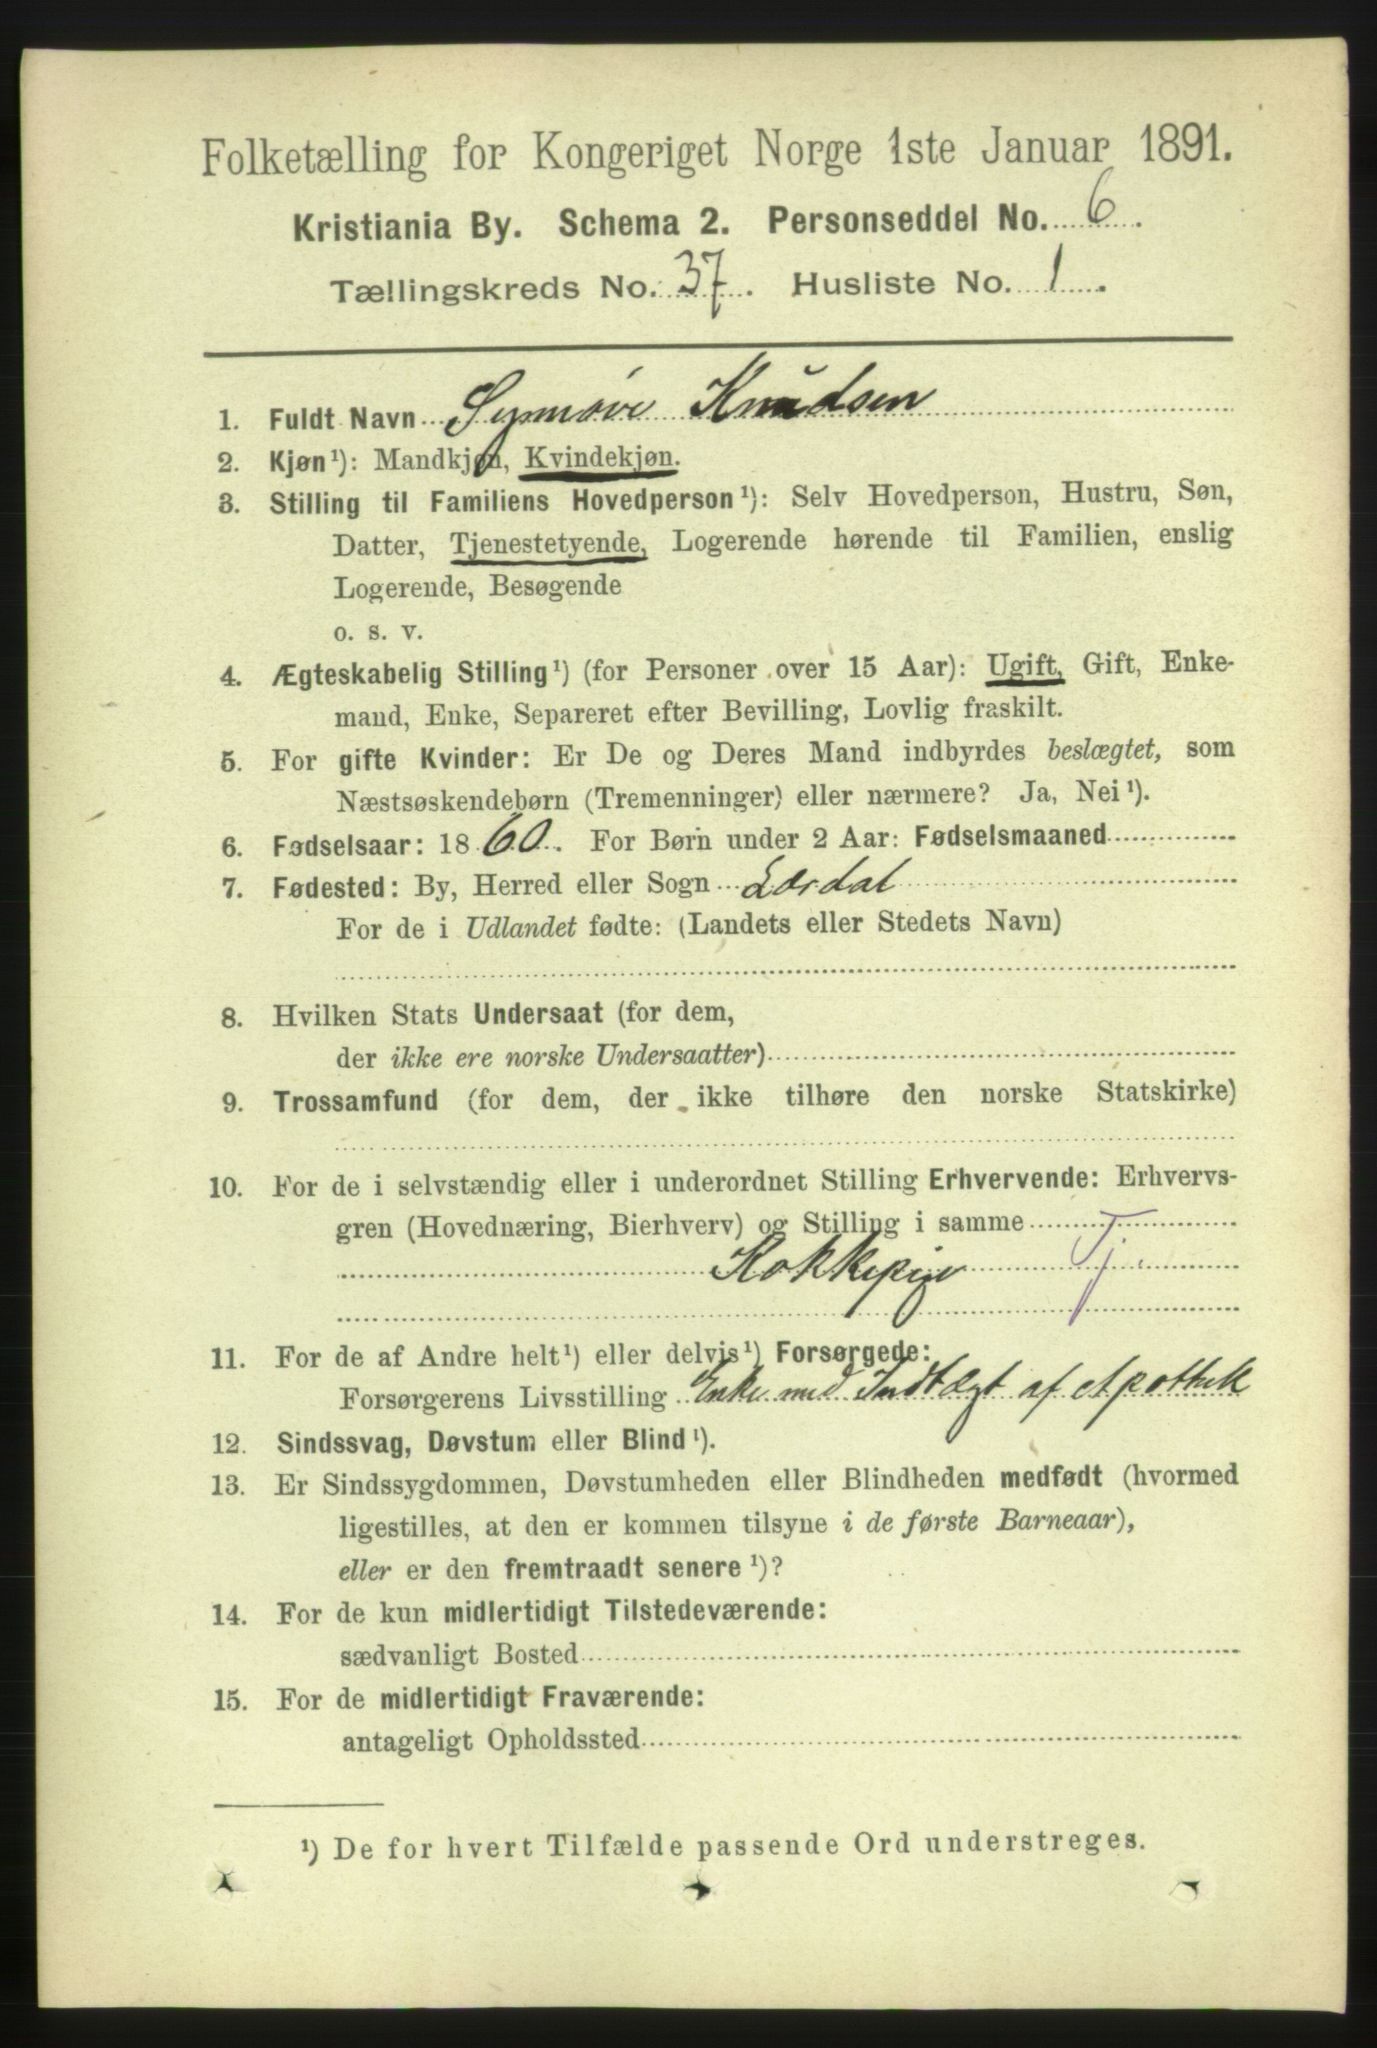 Folketælling for Kongeriget Norge 1ste Januar 1891.
Kristiania By. Schema 2. Personseddel No. 6.
Tællingskreds No. 37. Husliste No. 1.
1. Fuldt Navn Synnøve Knudsen
2. Kjøn¹): Mandkjøn, Kvindekjøn.
3. Stilling til Familiens Hovedperson¹): Selv Hovedperson, Hustru, Søn,
Datter, Tjenestetyende, Logerende hørende til Familien, enslig
Logerende, Besøgende
o. s. v.
4. Ægteskabelig Stilling¹) (for Personer over 15 Aar): Ugift, Gift, Enke-
mand, Enke, Separeret efter Bevilling, Lovlig fraskilt.
5. For gifte Kvinder: Er De og Deres Mand indbyrdes beslægtet, som
Næstsøskendebørn (Tremenninger) eller nærmere? Ja, Nei¹).
6. Fødselsaar: 1860. For Børn under 2 Aar: Fødselsmaaned
7. Fødested: By, Herred eller Sogn Lærdal
For de i Udlandet fødte: (Landets eller Stedets Navn)
8. Hvilken Stats Undersaat (for dem,
der ikke ere norske Undersaatter)
9. Trossamfund (for dem, der ikke tilhøre den norske Statskirke)
10. For de i selvstændig eller i underordnet Stilling Erhvervende: Erhvervs-
gren (Hovednæring, Bierhverv) og Stilling i samme
Kokkepige Tj.
11. For de af Andre helt¹) eller delvis¹) Forsørgede:
Forsørgerens Livsstilling Enke med Indtægt af Apothek
12. Sindssvag, Døvstum eller Blind¹).
13. Er Sindssygdommen, Døvstumheden eller Blindheden medfødt (hvormed
ligestilles, at den er kommen tilsyne i de første Barneaar),
eller er den fremtraadt senere¹)?
14. For de kun midlertidigt Tilstedeværende:
sædvanligt Bosted
15. For de midlertidigt Fraværende:
antageligt Opholdssted
¹) De for hvert Tilfælde passende Ord understreges.